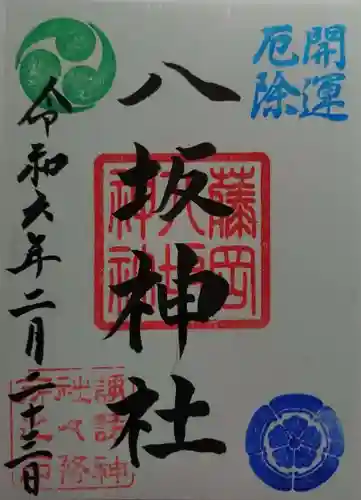 開運
厄除
八坂神社
藤岡
八坂
神社
令和六年二月二十三日
諏訪神
社々務